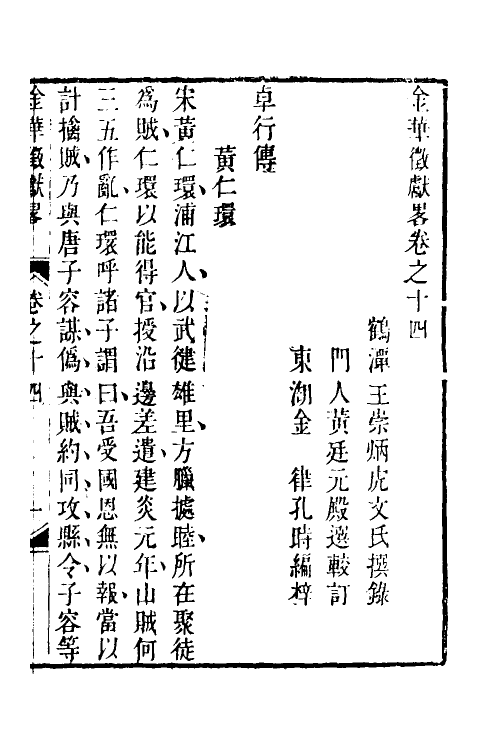 金華徵獻畧卷之十四
鶴潭王崇炳虎文氏撰錄
門人黃廷元殿選較訂
東湖金律孔時編梓
卓行傳
黃仁環
宋黃仁環浦江人以武健雄里方臘據睦所在聚徒
爲賊仁環以能得官授沿邊差遣建炎元年山賊何
三五作亂仁環呼諸子謂曰吾受國恩無以報當以
計擒賊乃與唐子容謀僞與賊約同攻縣令子容等
金華徵獻畧
卷之十四
一